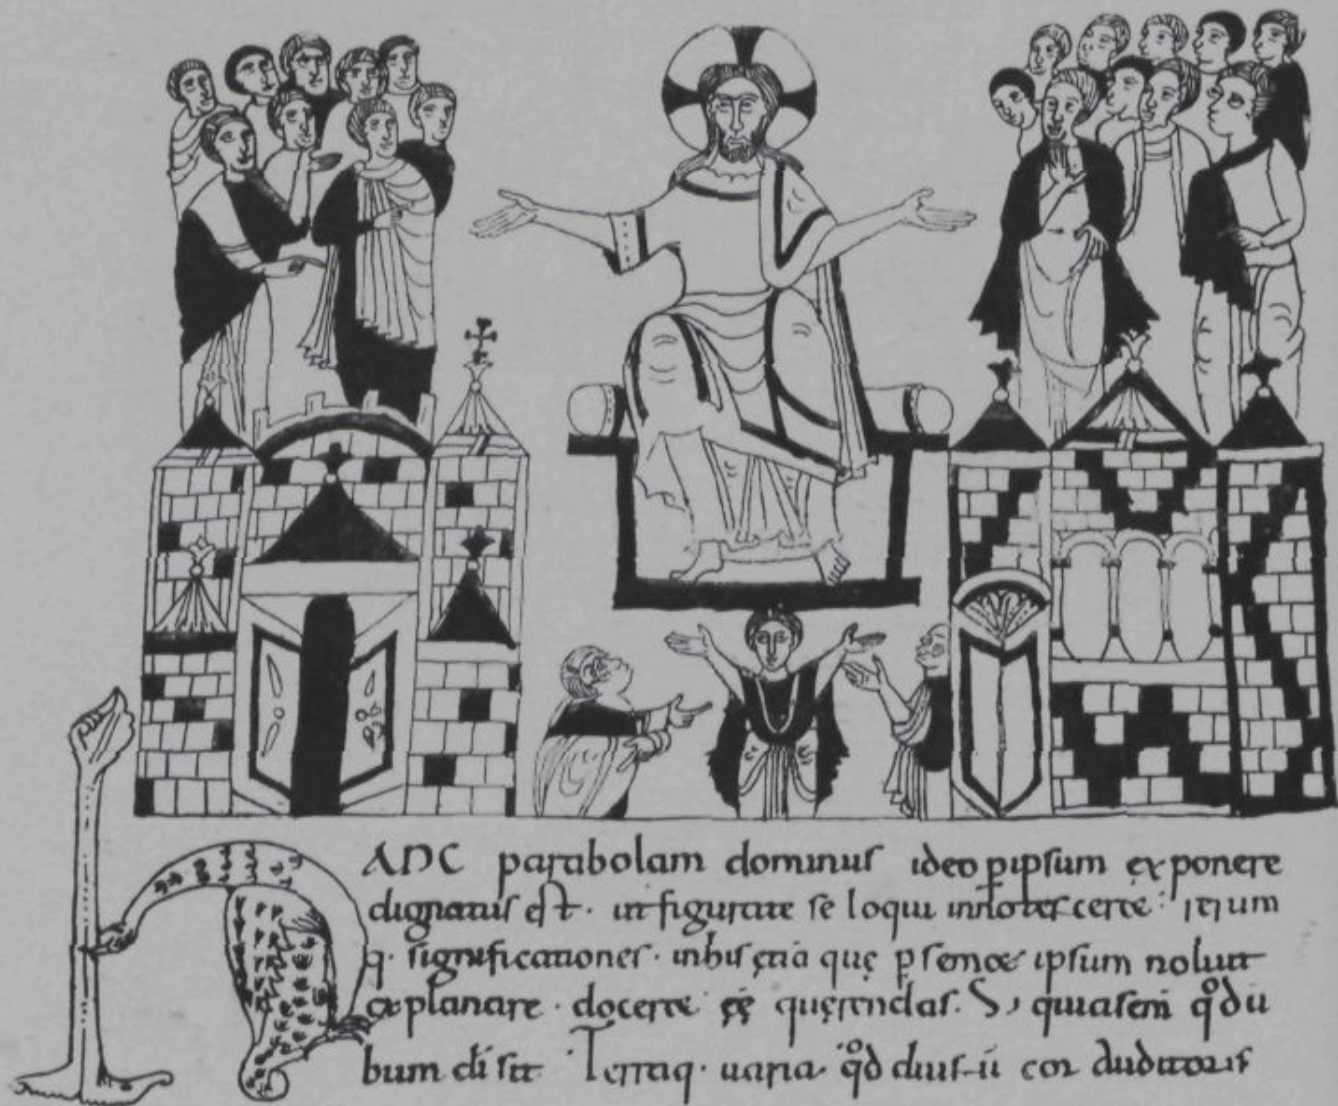 hANC parabolam dominus ideo p ipsum exponere
dignatus est · ut figurate se loqui innotescerte : rerum
q · significationes · in his &iā quę p sem& ipsum noluit
explanare · docer& ee quęrendas. S; quia sem qđ du
bum di sit Terraq · uaria · qđ dius ii cor auditoris